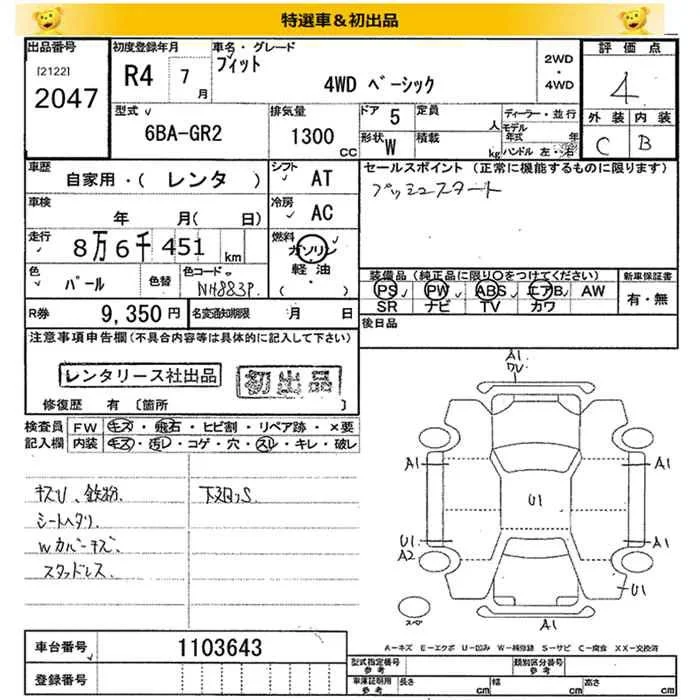 特選車＆初出品
出品番号
[2122]
2047
初度登録年月
R4 7月
車名・グレード
フィット
4WD ベーシック
2WD・4WD
評価点
4
外装 内装
C B
型式
6BA-GR2
排気量
1300 CC
ドア 5
定員 人
形状 W
積載 kg
ディーラー・並行
モデル年式 年
ハンドル 左・右
車歴
自家用・( レンタ )
シフト AT
車検
年 月( 日)
冷房 AC
走行
8万6千451 km
燃料
ガソリン
軽油
( )
色
パール
色替
色コード
NH883P
R券 9,350円
名変通知期限 月 日
セールスポイント (正常に機能するものに限ります)
プッシュスタート
装備品 (純正品に限り○をつけてください)
新車保証書
PS PW ABS エアB AW
SR ナビ TV カワ
有・無
後日品
注意事項申告欄(不具合内容等は具体的に記入して下さい)
レンタリース社出品
初出品
修復歴 有 〔箇所 〕
検査員記入欄
FW キズ・飛石・ヒビ割・リペア跡・×要
内装 キズ・汚レ・コゲ・穴・スレ・キレ・破レ
キズU、鉄粉
下廻りS
シートヘタリ
Wカバーキズ
スタッドレス
A1
A1
A1
U1
U1
A2
A1
U1
A1
スペア
A－キズ E－エクボ U－凹み W－補修跡 S－サビ C－腐食 XX－交換済
車台番号 1103643
登録番号
型式指定番号 参考
類別区分番号 参考
車庫証明用 参考
長さ cm
幅 cm
高さ cm